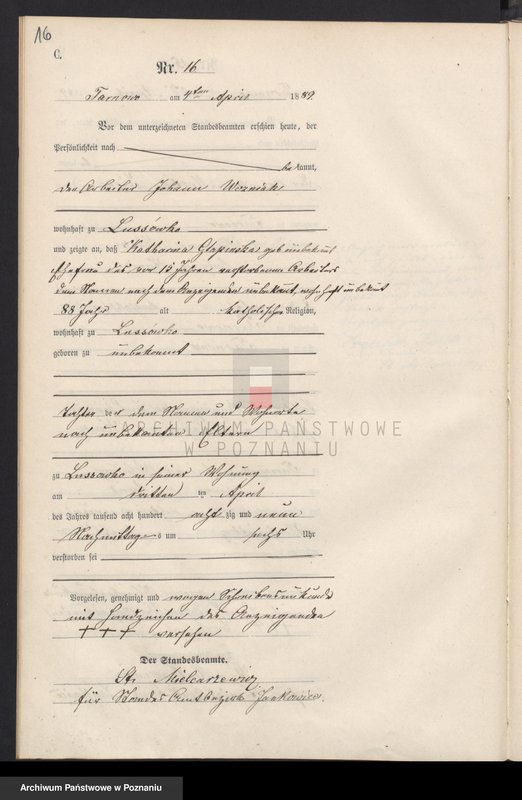 16
C.
Nr. 16
Tarnowo am 4ten April 1889.
Vor dem unterzeichneten Standesbeamten erschien heute, der
Persönlichkeit nach
bekannt,
der Arbeiter Johann Wozniak
wohnhaft zu Lussówko
und zeigte an, daß Katharina Glapinska geb unbekannt
Ehefrau des vor 18 Jahren verstorbenen Arbeiters
dem Namen nach dem Anzeigenden unbekannt, wohnhaft unbekannt
88 Jahr alt katholischer Religion,
wohnhaft zu Lussowko
geboren zu unbekannt
Tochter der dem Namen und Wohnorte
nach unbekannten Eltern
ARCHIWUM PAŃSTWOWE
W POZNANIU
zu Lussowko in seiner Wohnung
am dritten ten April
des Jahres tausend acht hundert achtzig und neun
Nachmittags um sechs Uhr
verstorben sei
Vorgelesen, genehmigt und wegen Schreibensunkunde
mit Handzeichen des Anzeigenden
+ + + versehen
Der Standesbeamte.
St. Mielcarzewicz
für Standes Amtsbezirk Jankowice.
Archiwum Państwowe w Poznaniu